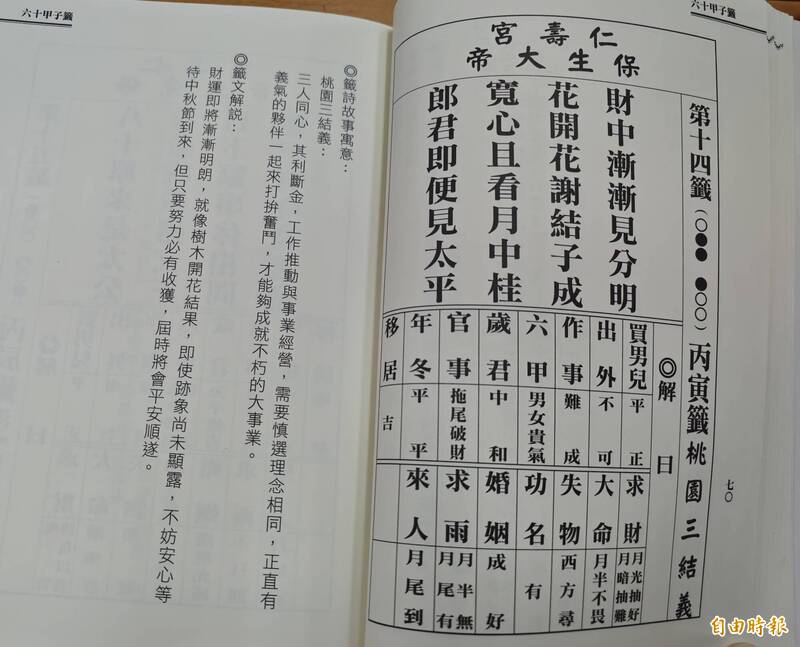 六十甲子籤
七〇
第十四籤(○●● ●○○)丙寅籤桃園三結義
仁壽宮
保生大帝
財中漸漸見分明
花開花謝結子成
寬心且看月中桂
郎君即便見太平
◎解曰
買男兒 平正
出外 不可
作事 難成
六甲 男女貴氣
歲君 中和
官事 拖尾破財
年冬 平平
移居 吉
求財 月光抽好
月暗抽難
大命 月半不畏
失物 西方尋
功名 有
婚姻 成好
求雨 月半無
月尾有
來人 月尾到
六十甲子籤
◎籤詩故事寓意:
桃園三結義:
三人同心,其利斷金,工作推動與事業經營,需要慎選理念相同,正直有
義氣的夥伴一起來打拚奮鬥,才能夠成就不朽的大事業。
◎籤文解說:
財運即將漸漸明朗,就像樹木開花結果,即使跡象尚未顯露,不妨安心等
待中秋節到來,但只要努力必有收獲,屆時將會平安順遂。
自由時報